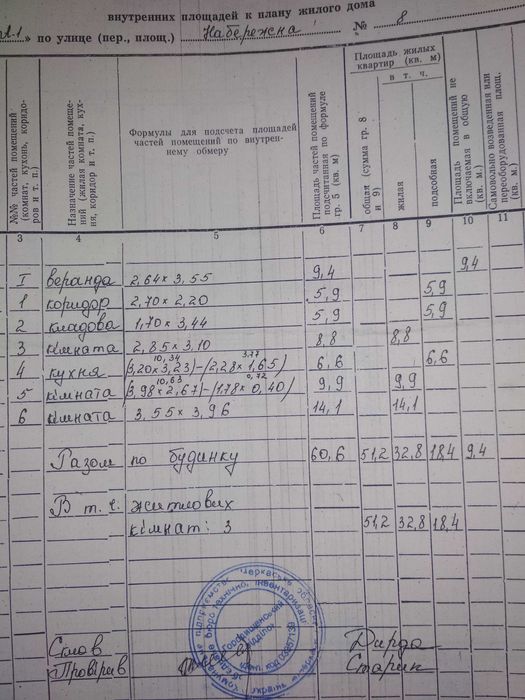 внутренних площадей к плану жилого дома
А-1 » по улице (пер., площ.) Набережна № 8
№№ частей помещений (комнат, кухонь, коридоров и т. п.)
Назначение частей помещений (жилая комната, кухня, коридор и т. п.)
Формулы для подсчета площадей частей помещений по внутреннему обмеру
Площадь частей помещений подсчитанная по формуле гр. 5 (кв. м)
Площадь жилых квартир (кв. м)
в т. ч.
общая (сумма гр. 8 и 9)
жилая
подсобная
Площадь помещений не включаемая в общую (кв. м)
Самовольно возведенная или переоборудованная площ. (кв. м)
3 4 5 6 7 8 9 10 11
I веранда 2,64 x 3,55 9,4 9,4
1 коридор 2,70 x 2,20 5,9 5,9
2 кладова 1,70 x 3,44 5,9 5,9
3 кімната 2,85 x 3,10 8,8 8,8
10,34 3,77
4 кухня (3,20 x 3,23)-(2,28 x 1,65) 6,6 6,6
10,63 0,72
5 кімната (3,98 x 2,67)-(1,78 x 0,40) 9,9 9,9
6 кімната 3,55 x 3,96 14,1 14,1
Разом по будинку 60,6 51,2 32,8 18,4 9,4
В т. ч. житлових
кімнат: 3 51,2 32,8 18,4
Черкаська
бюро технічної інвентаризації
Городищенський
відділок
Ідент. код
Україна
Склав Дирда
Провірив Старин